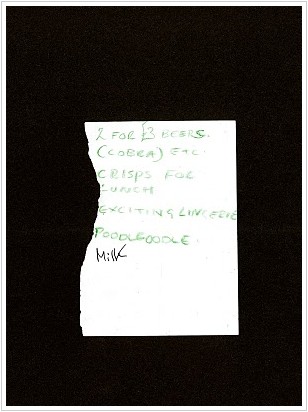 2 FOR £3 BEERS.
(COBRA) ETC.
CRISPS FOR
LUNCH
EXCITING LINGERIE
POODLEOODLE.
Milk